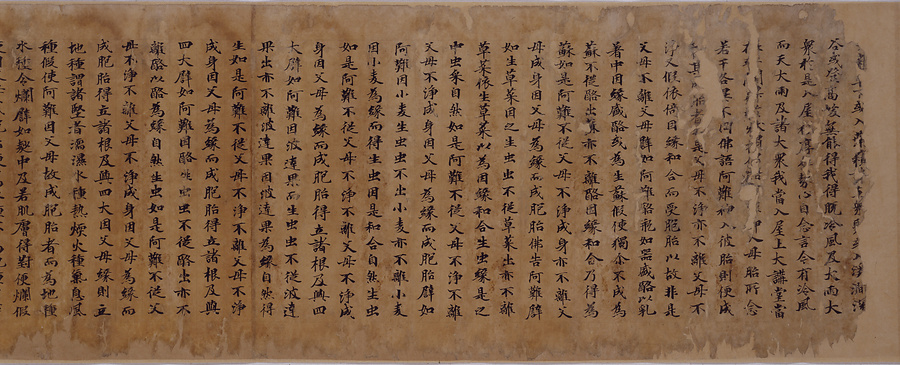 谷或在
冷風及大雨大
衆於是入屋
自念言今有冷風
而天大雨及諸大衆我當入屋上大講堂當
入母胎所念
若干各異不同佛語阿難神入彼胎則便成
是父母不淨亦不離父母不
淨又假依倚因緣和合而受胞胎以故非是
父母不離父母譬如阿難酪瓶如器盛酪以乳
著中因緣盛酪或為生蘇假使獨尒不成為
蘇不從酪出蘇亦不離酪因緣和合乃得為
蘇如是阿難不從父母不淨成身亦不離父
母成身因父母為緣而成胞胎佛告阿難譬
如生草菜因之生虫虫不從草菜出亦不離
草菜依生草菜以為因緣和合生虫緣是之
中虫自然如是阿難不從父母不淨不離
父母不淨成身因父母為緣而成胞胎譬如
阿難因小麦生虫虫不出小麦亦不離小麦
因小麦為緣而得生虫因是和合自然生虫
如是阿難不從父母不淨不離父母不淨成
身因父母為緣而成胞胎得立諸根及與四
大譬如阿難因波達果而生虫虫不從波達
果出亦不離波達果因波達果為緣自然得
生如是阿難不從父母不淨不離父母不淨
成身因父母為緣而成胞胎得立諸根及與
四大譬如阿難因酪生虫虫不從酪出亦不
離酪以酪為緣自然生虫如是阿難不從父
母不淨不離父母不淨成身因父母為緣而
成胞胎得立諸根及與四大因父母緣則立
地種謂諸堅者濕水種熱煖火種氣息風
種假使阿難因父母故成胞胎者而為地種
水種令爛譬如麨中及若肌膚得對便爛假